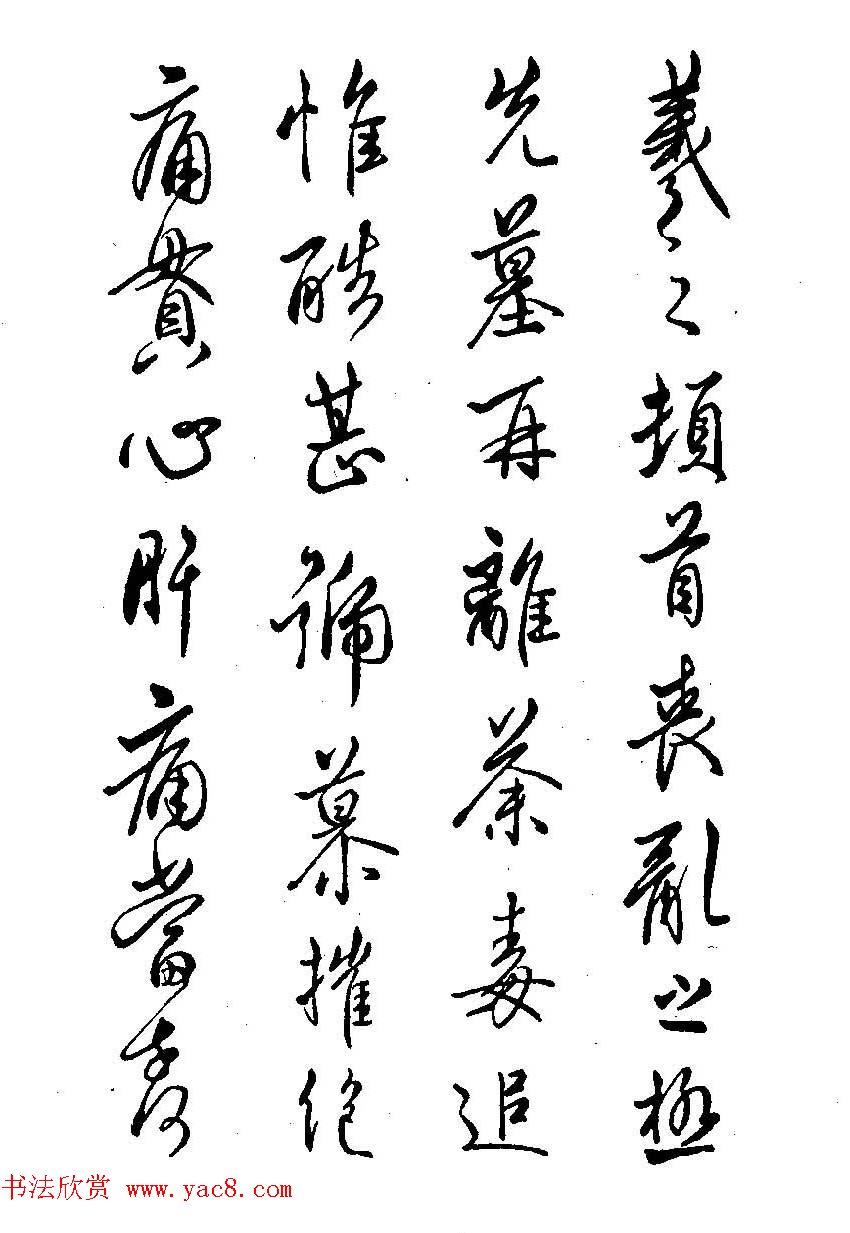 羲之頓首喪亂之極
先墓再離荼毒追
惟酷甚號慕摧絕
痛貫心肝痛當奈何
书法欣赏 www.yac8.com